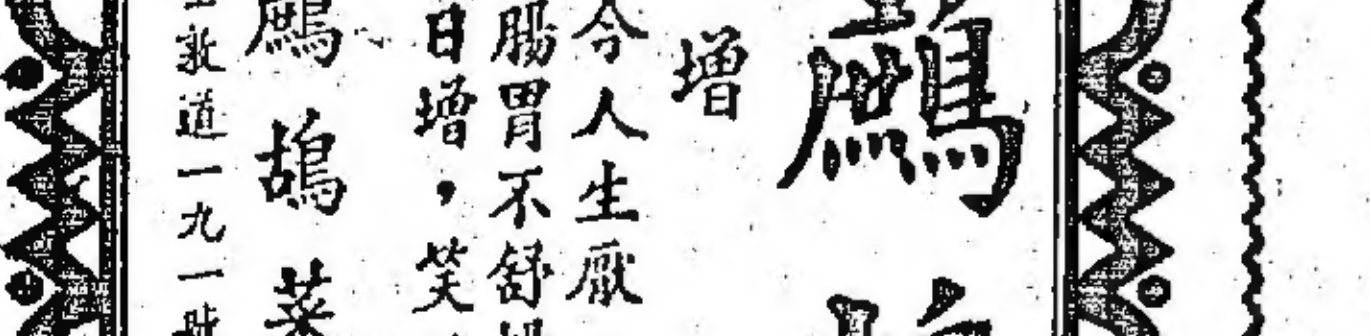 鷓
增
今人生厭
腸胃不舒
日增，笑
鷓鴣菜
敦道一九一號